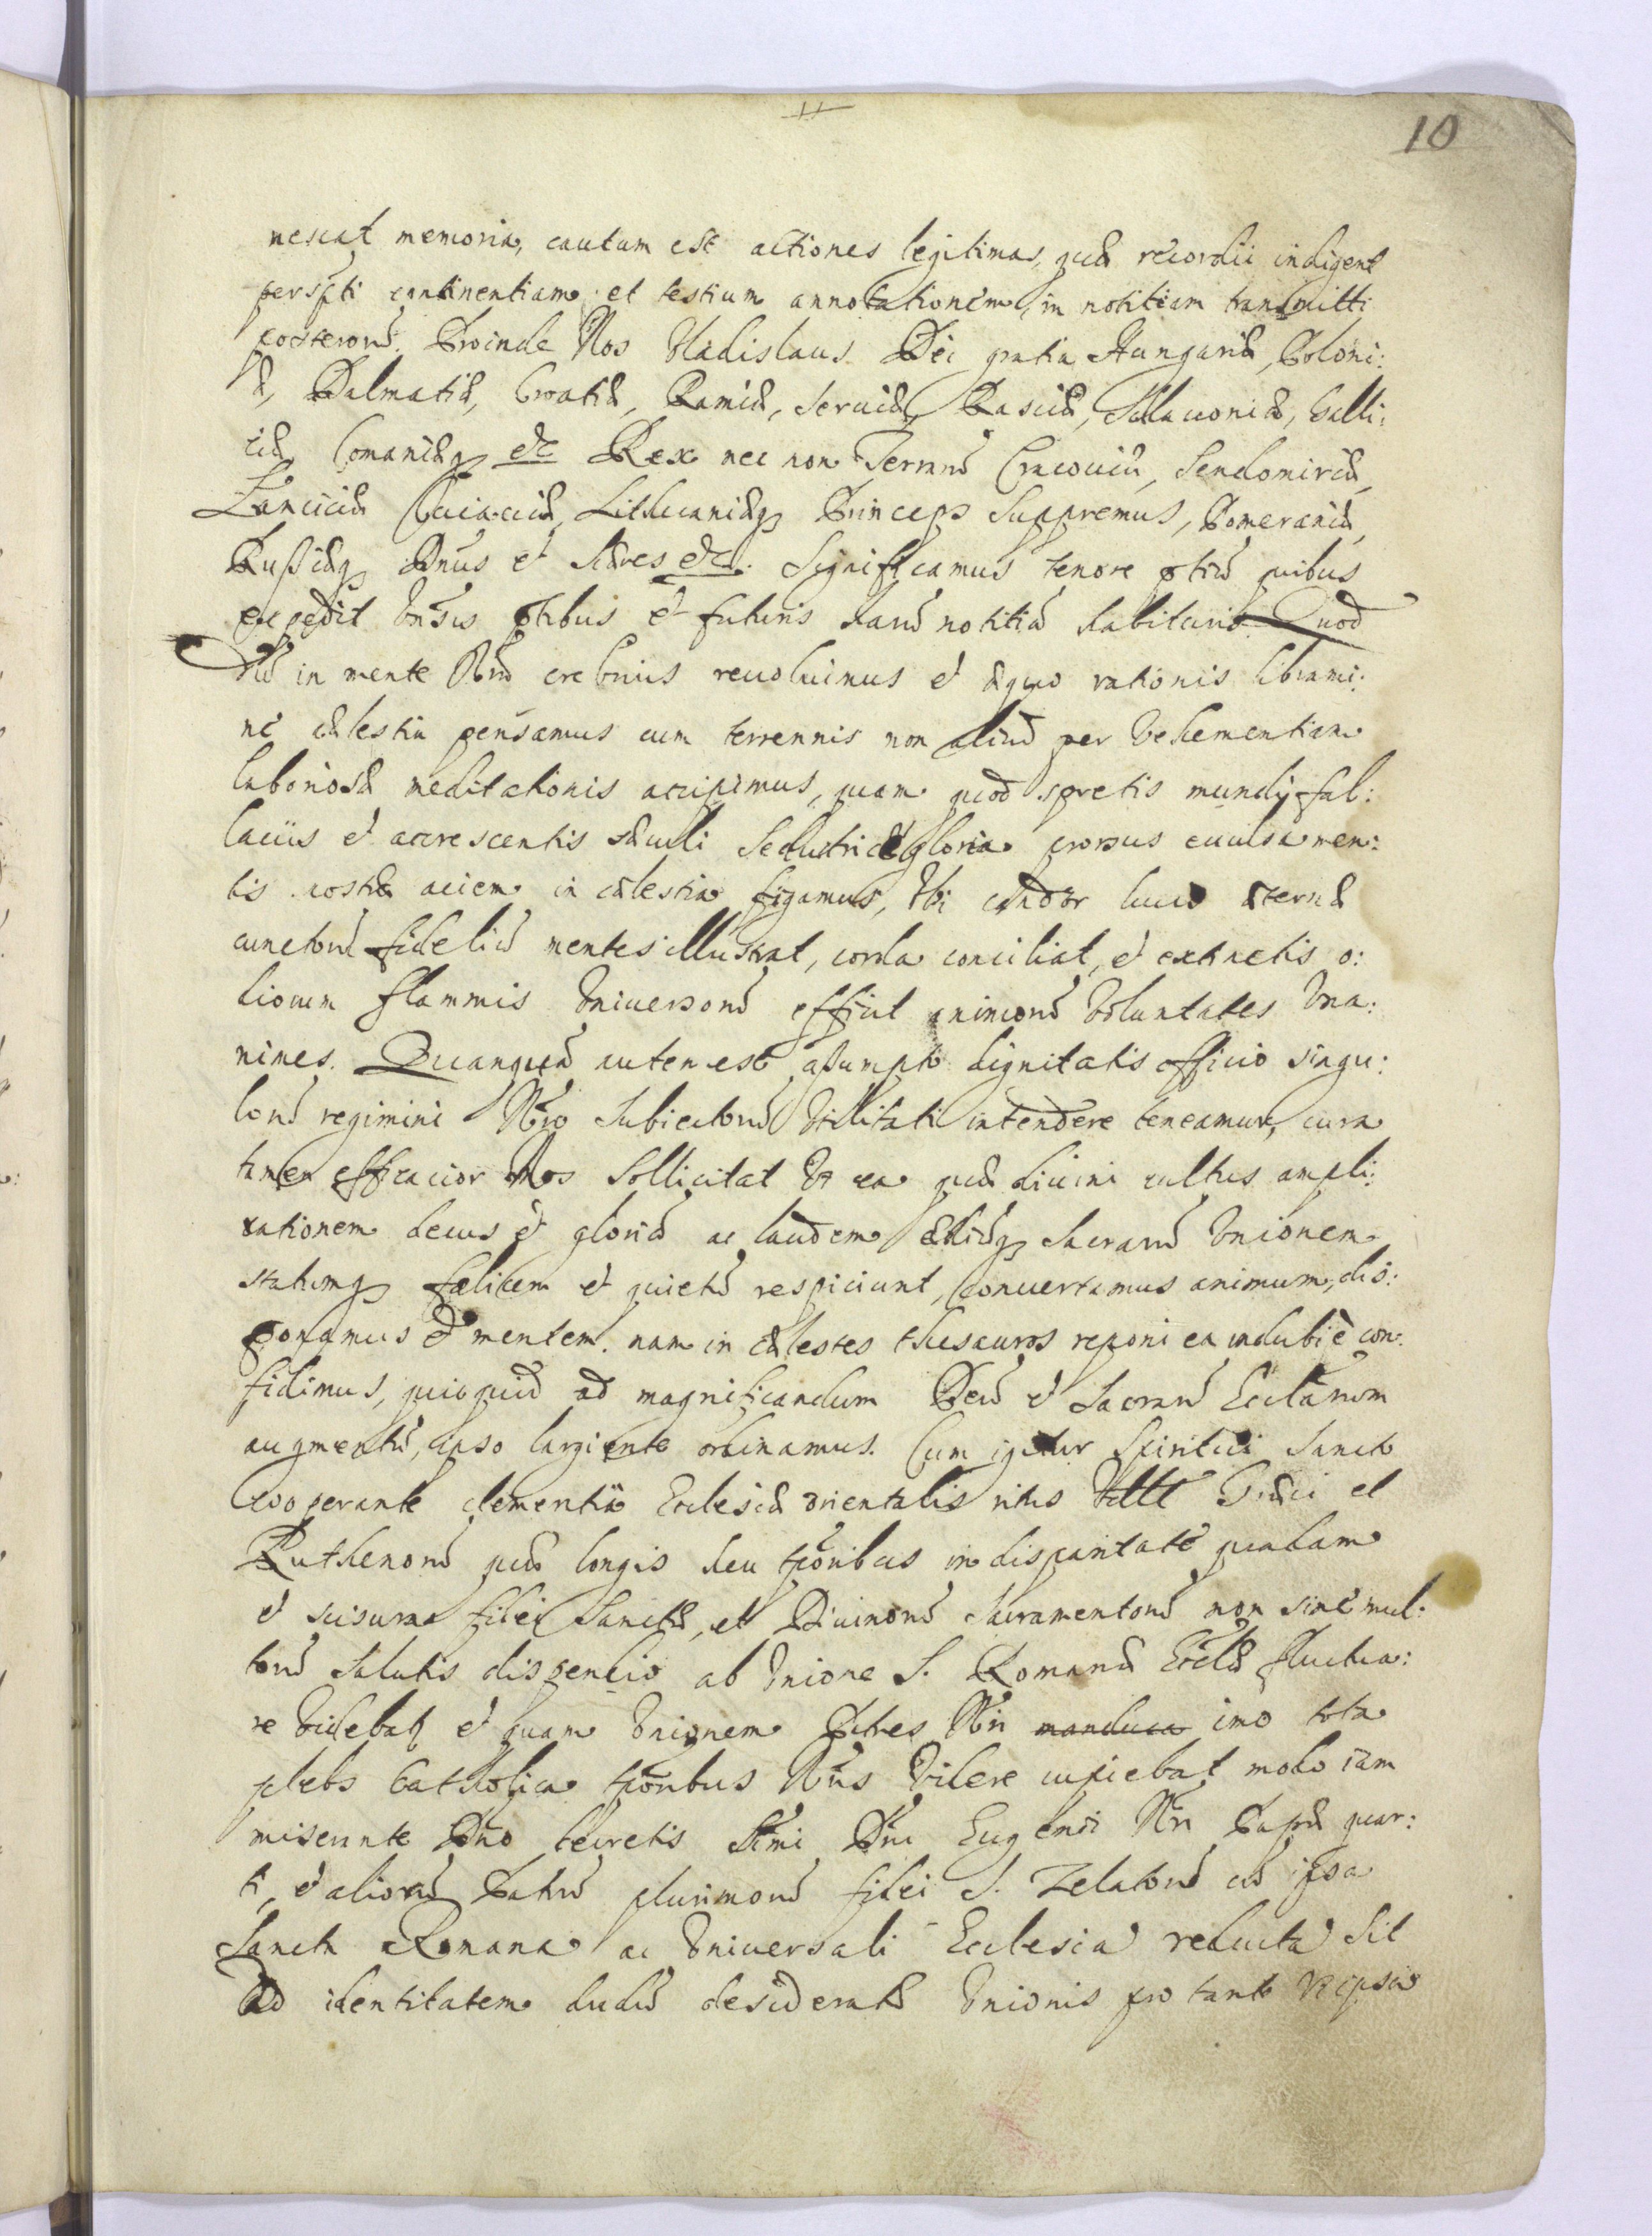 10
nescat memoria, cautum est actiones legitimas, quæ recordii indigent
per scpti continentiam et testium annotationem, in notitiam transmitti
posterorũ. Proinde Nos Vladislaus Dei gratia Hungariæ, Poloni:
æ, Dalmatiæ, Croatiæ, Ramiæ, Seruiæ, Rasciæ, Sclauoniæ, Galli:
ciæ Comaniæq etc Rex nec non Terrarũ Cracouiæ, Sendomiriæ,
Lanciciæ Cuiauiæ, Lithuaniæq Princeps Suppremus, Pomeraniæ,
Rußiæq Dnus et Hæres etc. Significamus tenore pñtiũ quibus
expedit vnĩsis pñtibus et futuris harũ notitiã habituris Quod
dũ in mente Nrã crebrius reuoluimus et æquo rationis librami:
ne cælestia pensamus cum terrennis non aliud per vehementiam
laboriosæ meditationis accipimus, quam quod spretis mundij fal:
laciis et accrescentis sæculi Seductrice gloria prorsus euulsa men:
tis nostræ aciem in cælestia figamus, Vbi candor lucis æternæ
cunctorũ fideliũ mentes illustrat, corda conciliat, et extinctis o:
diorum flammis Vniuersorũ efficit animorũ Voluntates Vna:
nimes. Quanquã autem est assumpto dignitatis officio singu:
lorũ regimini Nro Subiectorũ Vtilitati intendere teneamur, cura
tamen efficacior Nos Sollicitat Vt ea quæ diuini cultus ampli:
xationem decus et gloriã ac laudem Ædiũq Sacrarũ Vnionem
statumq fælicem et quietũ respiciunt, conuertamus animum, dis:
ponamus et mentem. nam in cælestes thesauros reponi ea indubiè con:
fidimus, quicquid ad magnificandum Deũ et Sacrarũ Ecclãrum
augmentũ, ipso largiente ordinamus. Cum igitur Spiritus Sancto
cooperante clementia Ecclesia orientalis ritus Græci et
Ruthenorũ quæ longis heu tporibus in disparitate quadam
et scisura fidei Sanctæ, et Diuinorũ Sacramentorũ non sine mul:
torũ Salutis dispendio ab Vnione S. Romanæ Ecclæ fluctua:
re Videbatq et quam Vnionem Patres Nri manduca imo tota
plebs Catholica tporibus Nris Videre cupiebat modo iam
miserante Dño decretis Stmi Dni Eugenii Nri Papæ quar:
ti, et aliorũ Patrũ plurimorũ fidei S. Zelatorũ cũ ipsa
Sancta Romana ac Vniuersali Ecclesia reducta Sit
Ad identitatem dudũ desideratæ Vnionis pro tanto Vt ipsa